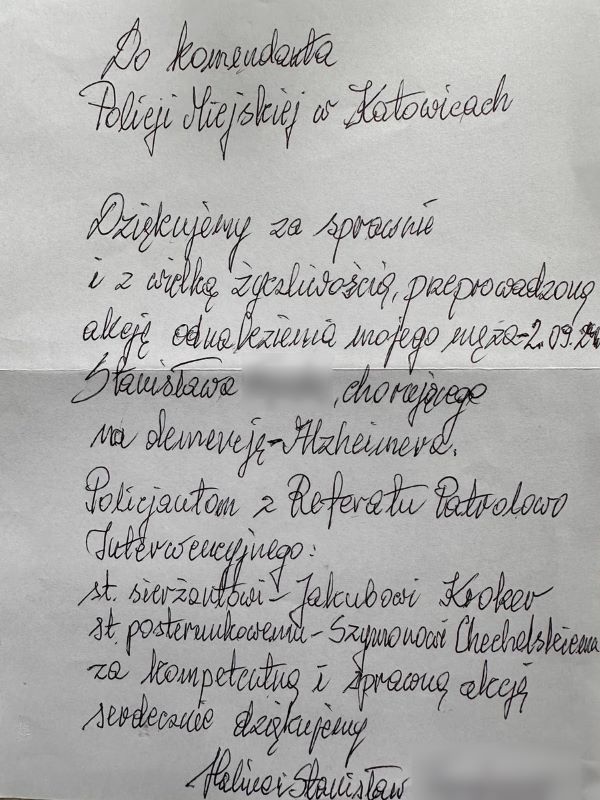 Do komendanta
Policji Miejskiej w Katowicach
Dziękujemy za sprawnie
i z wielką życzliwością, przeprowadzoną
akcję odnalezienia mojego męża-2.09.24
Stanisława ,chorującego
na demencję-Alzheimera.
Policjantom z Referatu Patrolowo
Interwencyjnego:
st. sierżantowi-Jakubowi Kroker
st. posterunkowemu-Szymonowi Chechelskiemu
za kompetentną i sprawną akcję
serdecznie dziękujemy
Halina i Stanisław